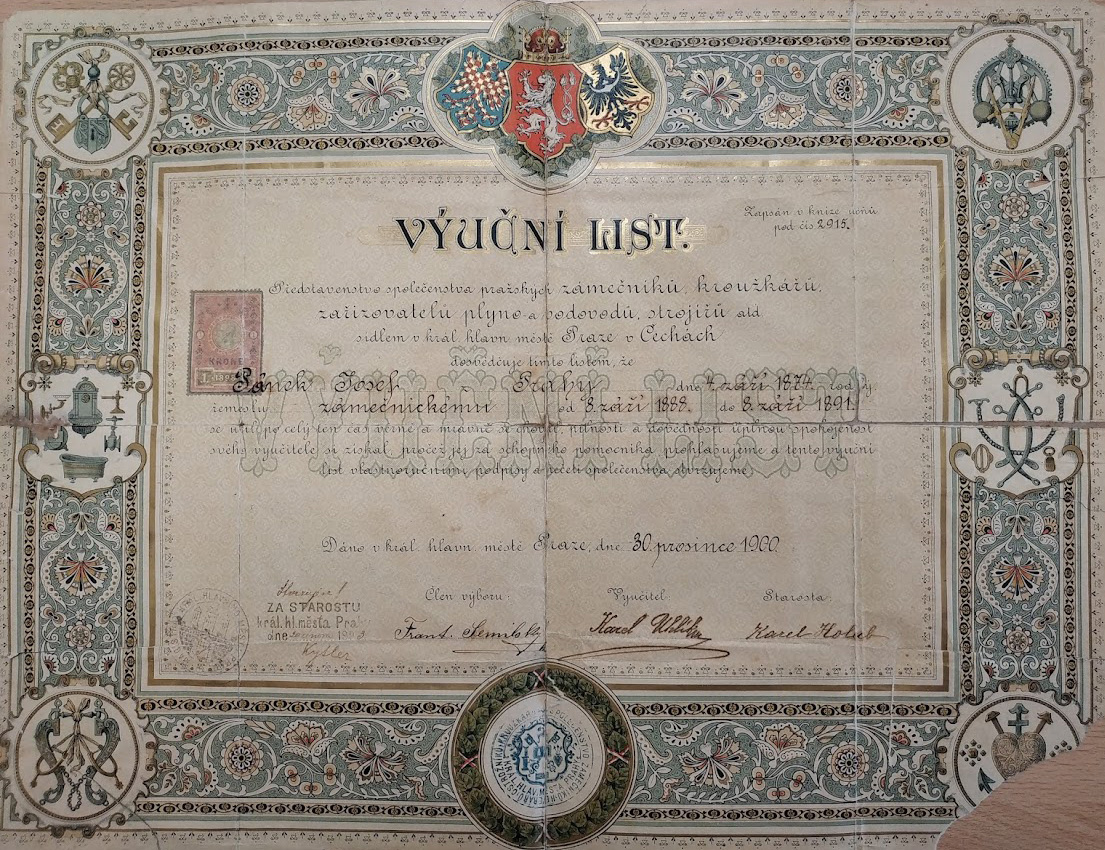 Zapsán v knize učňů
pod čís. 2915.
VÝUČNÍ LIST.
Představenstvo společenstva pražských zámečníků, kroužkářů,
zařizovatelů plyno- a vodovodů, strojířů atd
sídlem v král. hlavn. městě Praze v Čechách
dosvědčuje tímto listem, že
Pánek Josef z Prahy dne 4. září 1874. rodilý,
řemeslu zámečnickému od 8. září 1888. do 8. září 1891.
se učil, po celý ten čas věrně a mravně se choval, pilností a dovedností úplnou spokojenost
svého vyučitele si získal, pročež jej za schopného pomocníka prohlašujeme a tento výuční
list vlastnoručními podpisy a pečetí společenstva stvrzujeme.
VÝUČNÍ LIST
Dáno v král. hlavn. městě Praze, dne 30. prosince 1900.
Člen výboru: Vyučitel: Starosta:
ZA STAROSTU
král. hl. města Prahy
dne
Frant. Karel Karel Holub
KRONE